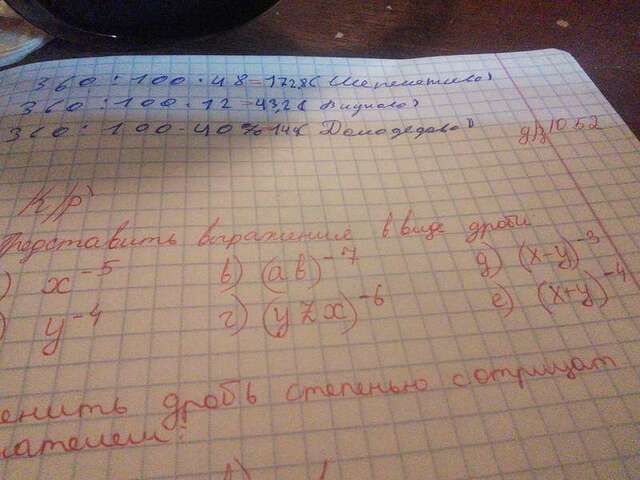 360 : 100 · 48 = 172,8 (Шереметьево)
360 : 100 · 12 = 43,2 (Внуково)
360 : 100 · 40% = 144 (Домодедово)
д/з 1052
К/р
Представить выражения в виде дроби
) x⁻⁵ в) (ab)⁻⁷ д) (x-y)⁻³
) y⁻⁴ г) (yzx)⁻⁶ е) (x+y)⁻⁴
енить дробь степенью с отрицат
зателем: